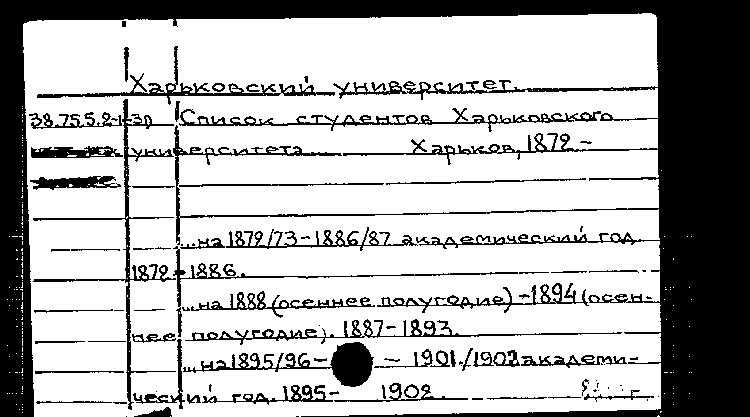 Харьковский университет.
38.75.5.2-1-30 Список студентов Харьковского
университета... Харьков, 1872 -
...на 1872/73-1886/87 академический год.
1872-1886.
...на 1888 (осеннее полугодие) -1894 (осен-
нее полугодие). 1887-1893.
...на 1895/96- - 1901./1902 академи-
ческий год. 1895- 1902.